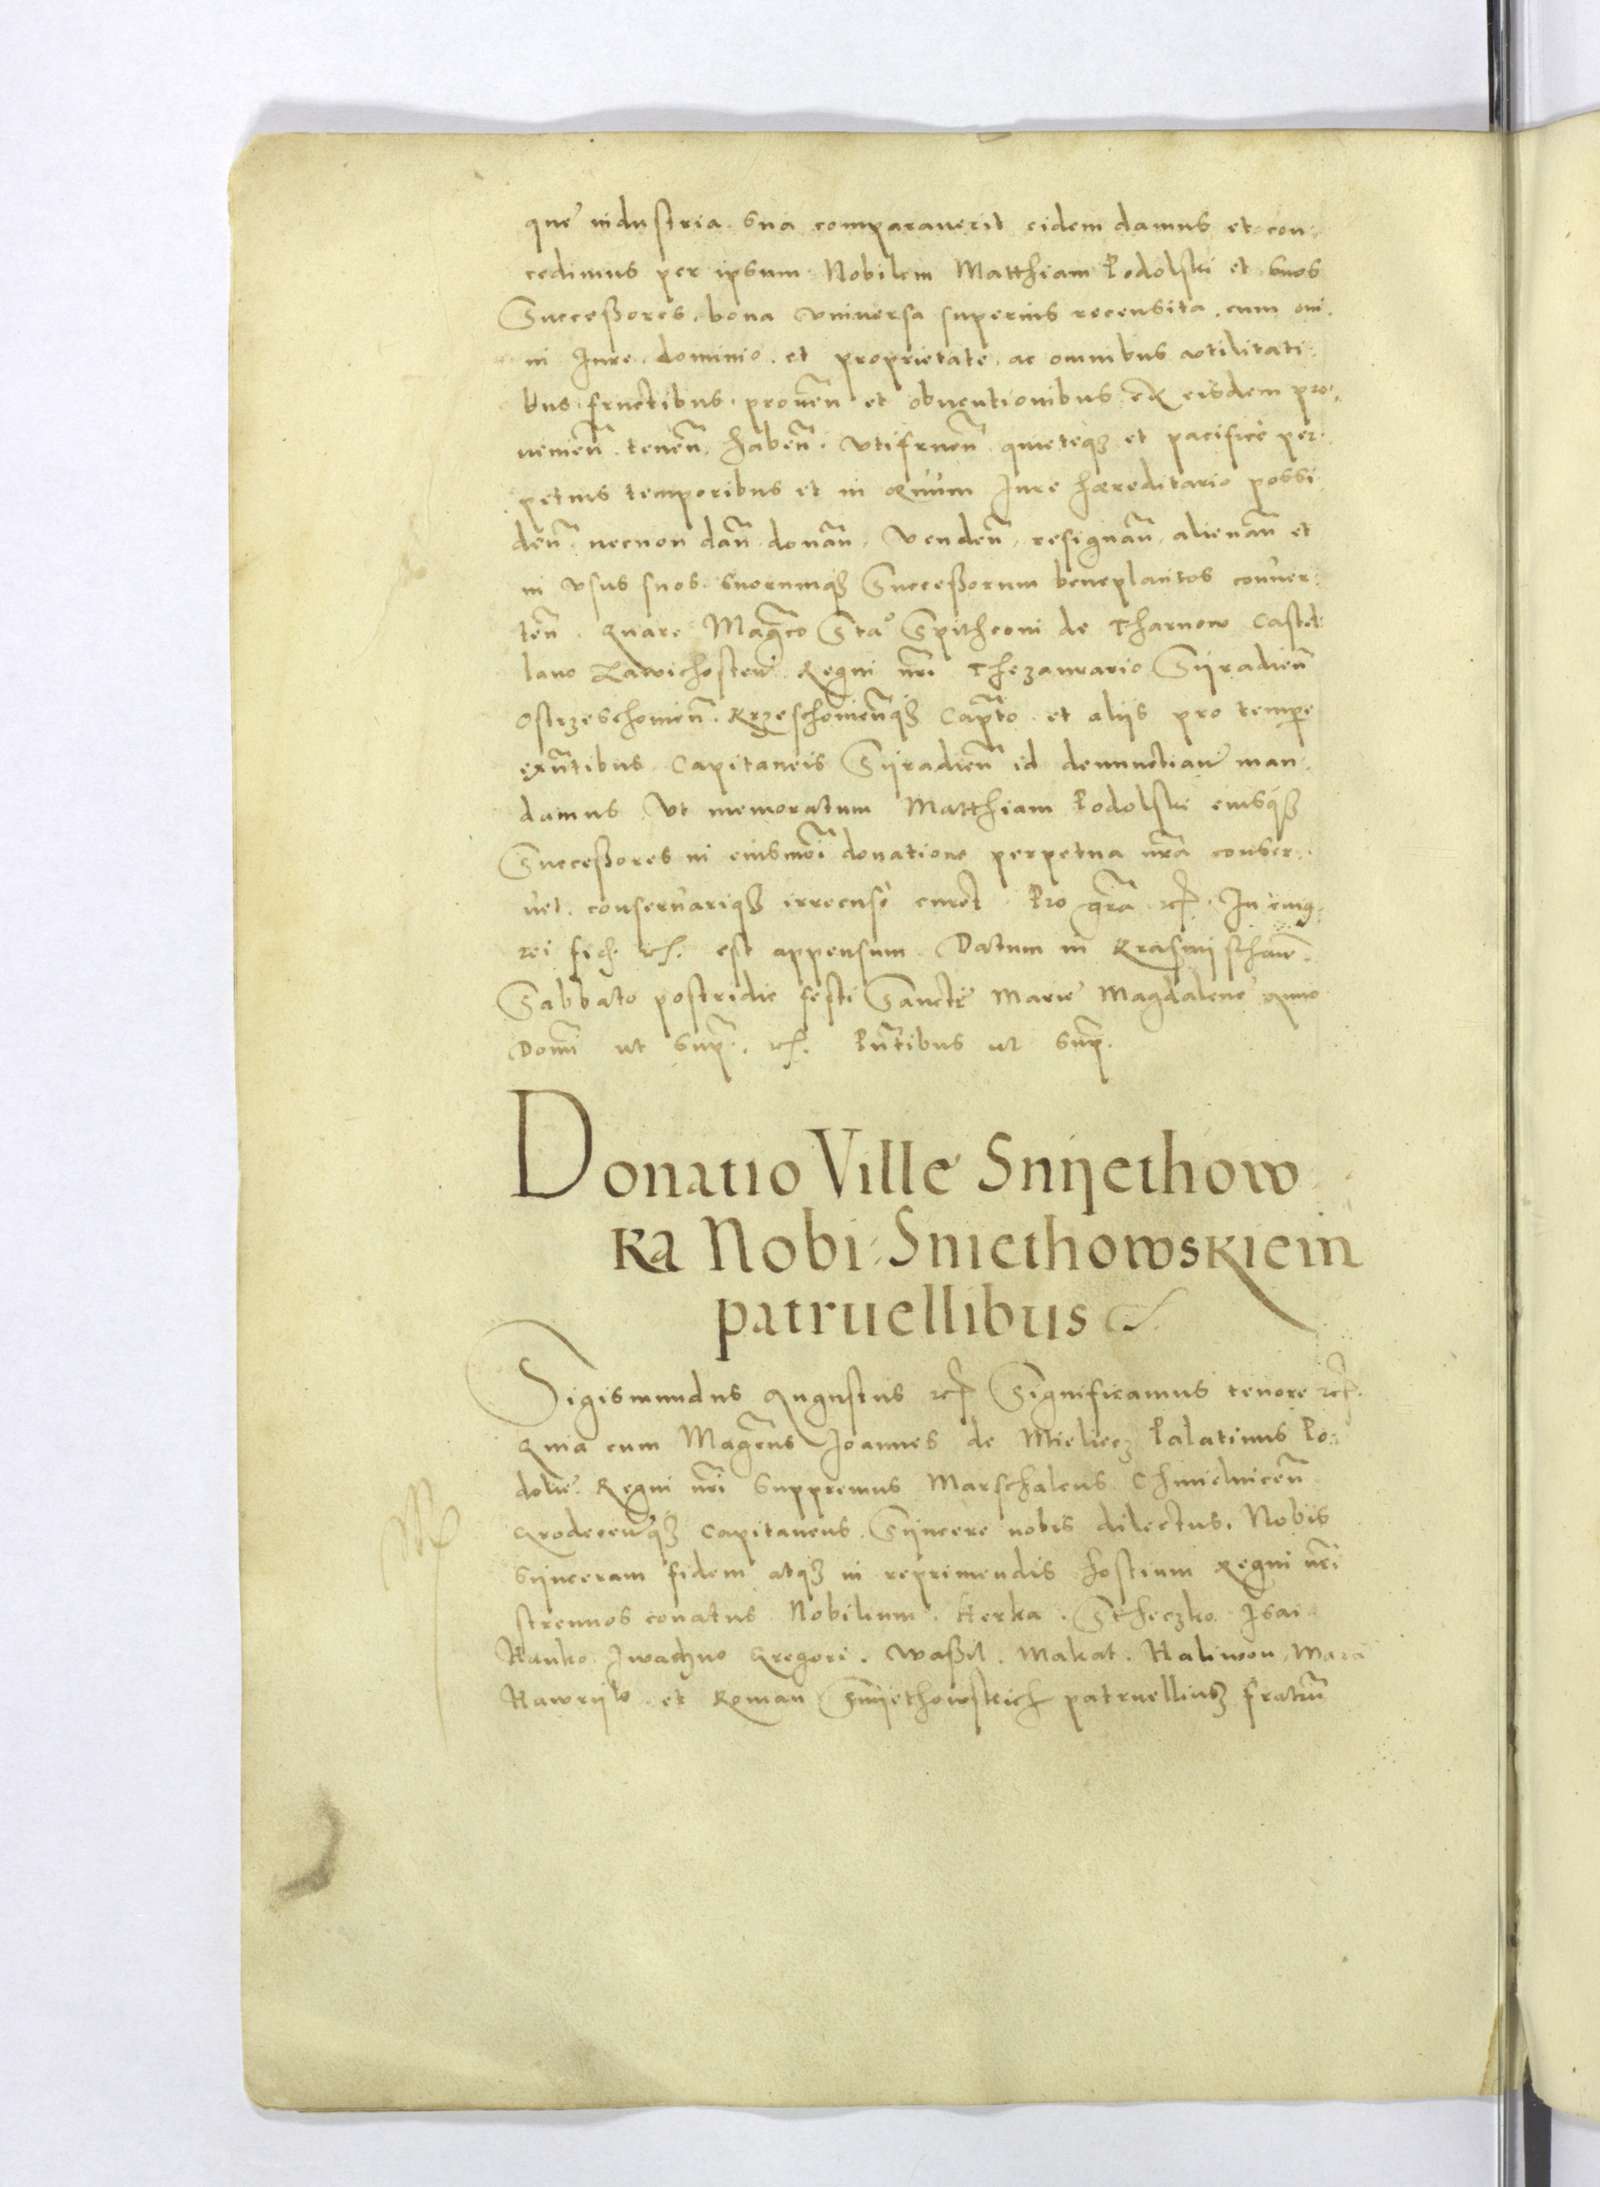 que industria sua comparaverit eidem damus et con-
cedimus per ipsum Nobilem Matthiam Podolski et suos
Successores, bona vniversa superius recensita, cum om-
ni Iure dominio et proprietate ac omnibus vtilitati-
bus fructibus proven et obventionibus ex eisdem pro-
venien tenen haben vtifruen quieteqz et pacifice per-
petuis temporibus et in aevum Iure haereditario possi-
den necnon dan donan, venden, resignan, alienan et
in vsus suos suorumqz Successorum beneplacitos conver-
ten. Quare Magco Stao Spithconi de Tharnow Castel-
lano Zawichosten Regni nri Thezaurario Syradien
Ostrzeschowien Krzeschowienqz Capto et aliis pro tempe
exntibus Capitaneis Syradien id denunctian man-
damus vt memoratum Matthiam Podolski eiusqz
Successores in eiusmoi donatione perpetua nra conser-
vet conservariqz irrecuse curet. Pro gra etc. In cuius
rei fid. etc. est appensum Datum in Krasniischaw
Sabbato postridie festi Sancte Marie Magdalene Anno
Domi ut sup. etc. Pntibus ut sup.
Donatio Ville Snyethow
ka Nobi: Sniethowskiem
patruellibus etc.
Sigismundus Augustus etc Significamus tenore etc.
Quia cum Magcus Ioannes de Mieliecz Palatinus Po-
dolie Regni nri suppremus Marschalcus Chmielnicen
Grodecenqz Capitaneus Syncere nobis dilectus, Nobis
synceram fidem atqz in reprimendis hostium Regni nri
strenuos conatus Nobilium Herka. Stheczko Isai
Hanko Iwachno Gregori. Wassil. Makat. Haliwon, Mara
Hawrylo et Roman Snyethowskich patruelliusz fratrum